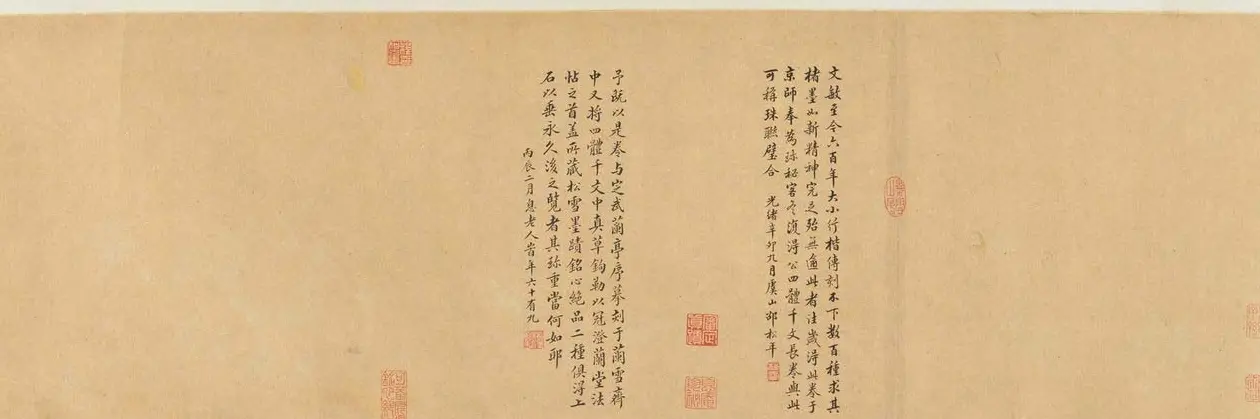 文敏至今六百年大小行楷傳刻不下數百種求其
楮墨如新精神完足殆無逾此者往歲得此卷于
京師奉為珍秘客冬復得公四體千文長卷與此
可稱珠聯璧合 光緒辛卯九月虞山邵松年
予既以是卷与定武蘭亭序摹刻于蘭雪齋
中又將四體千文中真草鉤勒以冠澄蘭堂法
帖之首蓋所藏松雪墨蹟銘心絕品二種俱得上
石以垂永久後之覽者其珍重當何如耶
丙辰二月息老人時年六十有九